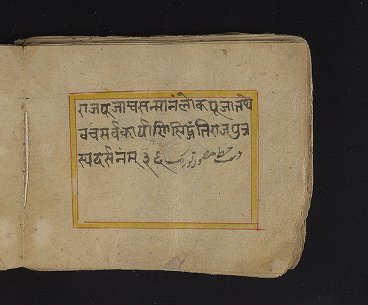 राजपूजाचसन्मानंलोकपूजातथै
वचसर्वकार्याणिसिद्धंतिराजपुत्र
स्पदर्सनंम३६